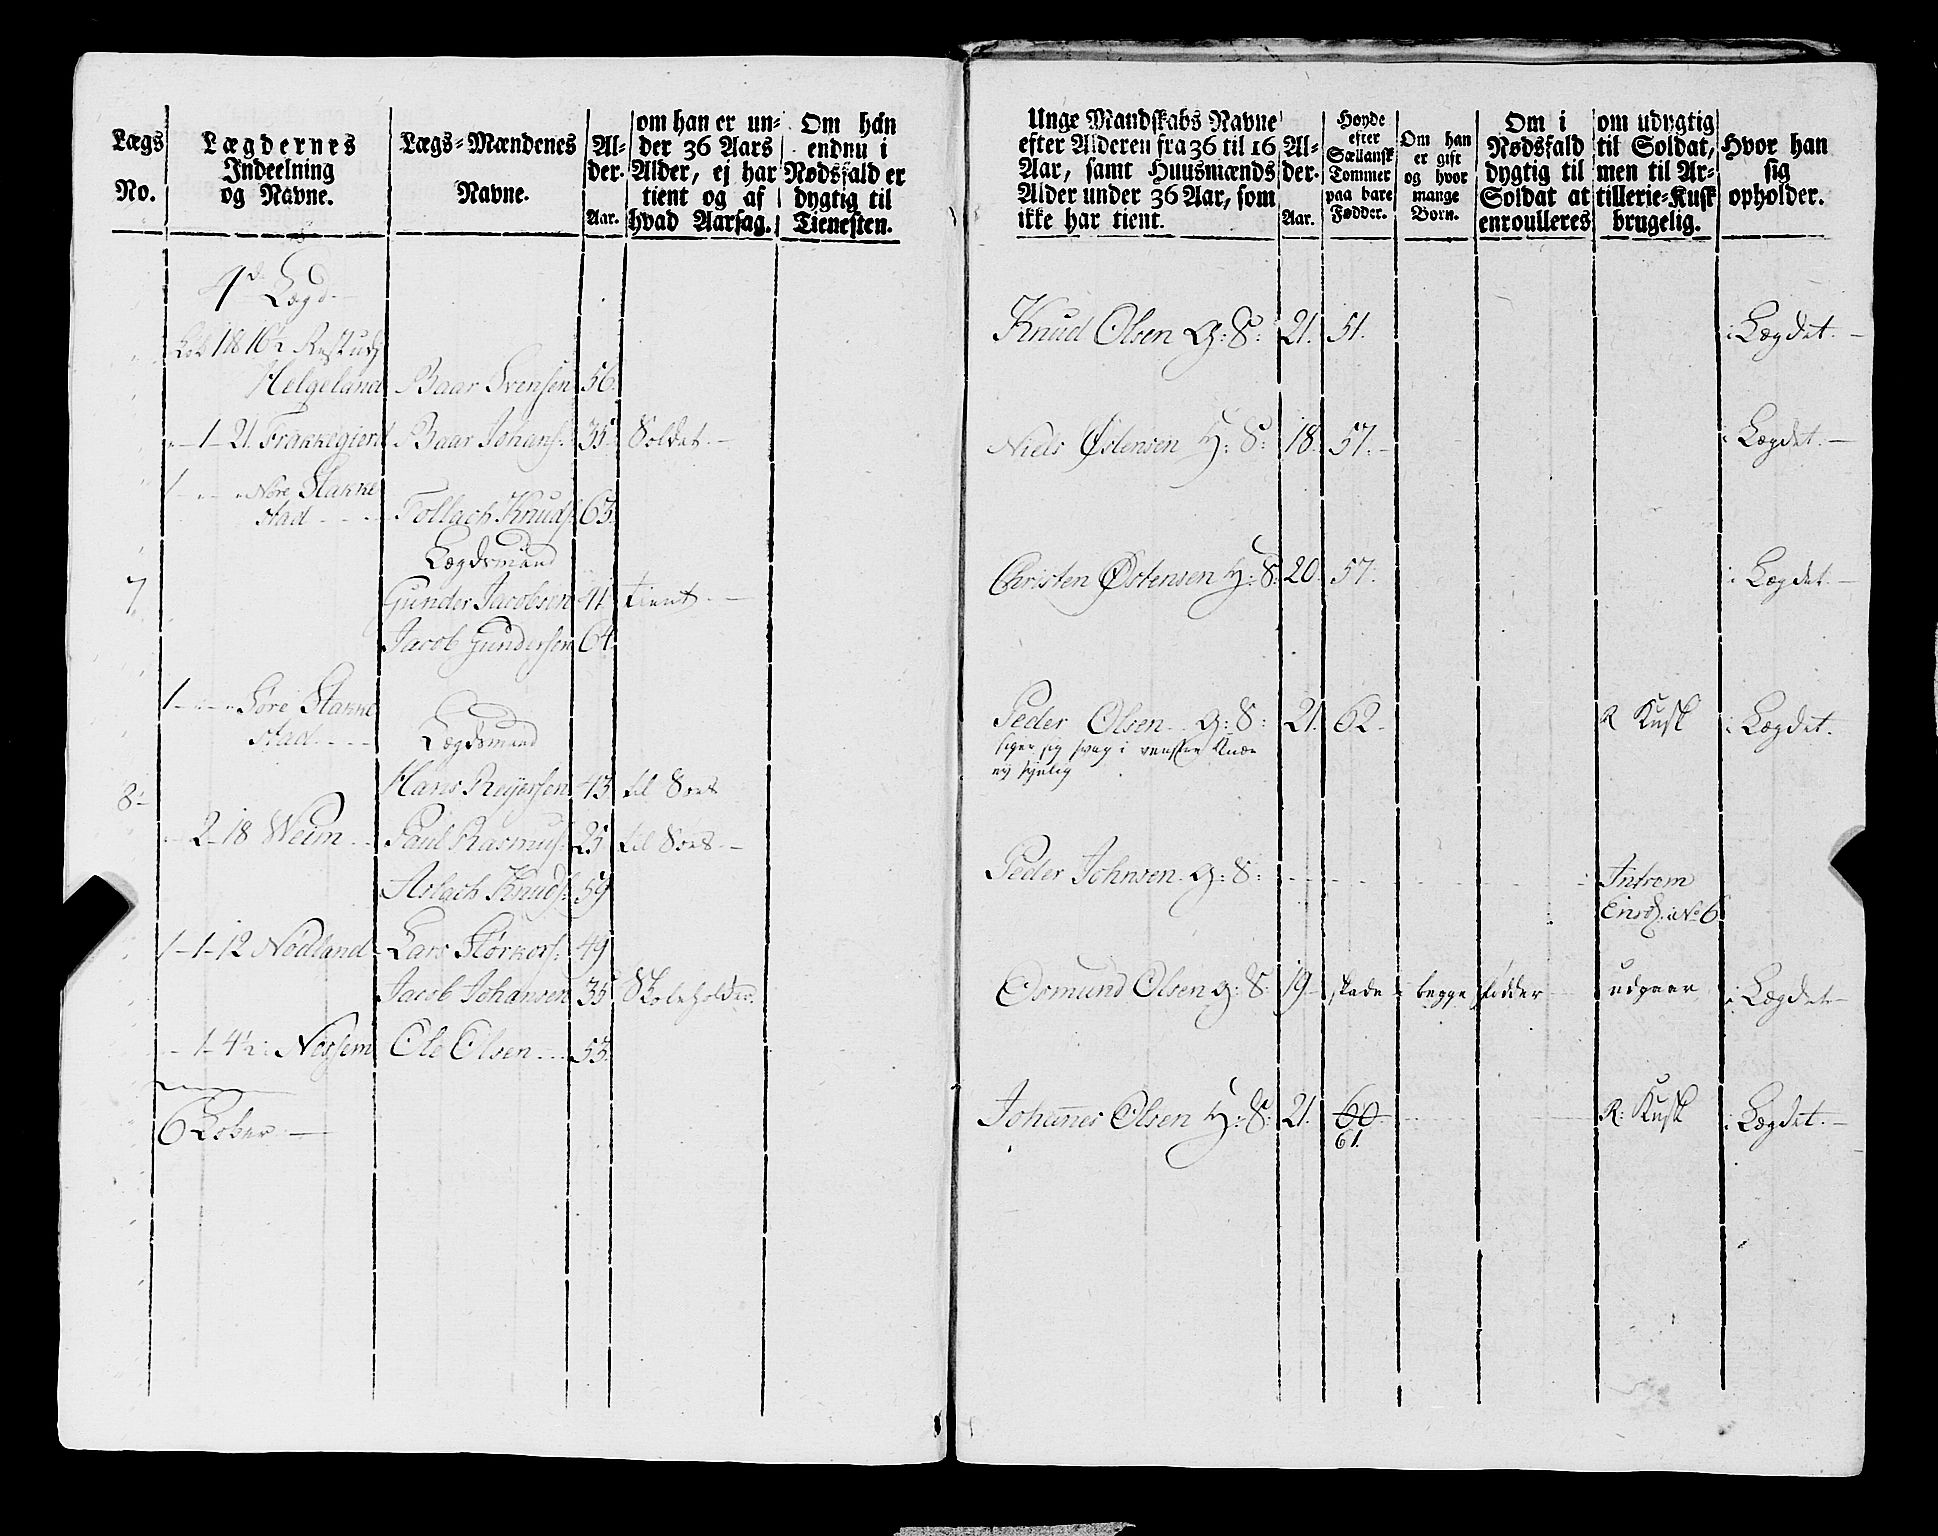 Lægs No.
Lægdernes Indeelning og Navne.
Lægs-Mændenes Navne.
Alder. Aar.
om han er under 36 Aars Alder, ej har tient og af hvad Aarsag.
Om han endnu i Nødsfald er dygtig til Tienesten.
4de Lægd
Helgeland Baar Svensen 56.
1 21. Baar Johans: 35 Soldat.
1 Nore Stakke
stad Tollach Knuds: 63.
Lægdsmand
7 Gunder Jacobsen 41 tient.
Jacob Gundersen 64
1 Søre Stakke
stad Lægdsmand
8 Hans Reijersen 43 til Søes
2 18 Weim Paul Rasmus: 25 til Søes
Aslach Knuds: 59
1-1-12 Nødland Lars 49
Jacob Johansen 35 Skoleholder.
1-4½: Nessem Ole Olsen 53.
6
Unge Mandskabs Navne efter Alderen fra 36 til 16 Aar, samt Huusmænds Alder under 36 Aar, som ikke har tient.
Alder. Aar.
Høyde efter Sællansk Tommer paa bare Fødder.
Om han er gift og hvor mange Børn.
Om i Nødsfald dygtig til Soldat at enroulleres
om udygtig til Soldat, men til Artillerie-Kusk brugelig.
Hvor han sig opholder.
Knud Olsen G: S: 21. 51. i Lægdet.
Niels Østensen H: S: 18. 57. i Lægdet.
Christen Østensen H: S: 20. 57. i Lægdet.
Peder Olsen G: S: 21 62 R Kusk i Lægdet.
siger sig svag i venstre Knæe
ej synlig
Peder Johnsen G: S: Introm
No 6
Osmund Olsen G: S: 19 skade i begge fødder udgaar i Lægdet
Johannes Olsen H: S: 21. 60 R: Kusk i Lægdet.
61.